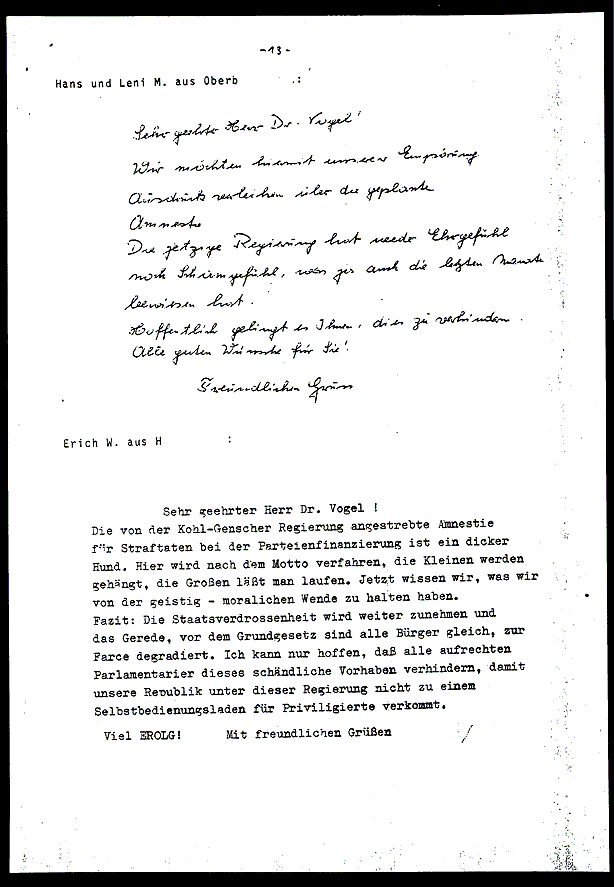 -13-
Hans und Leni M. aus Oberb :
Sehr geehrter Herr Dr. Vogel!
Wir möchten hiermit unserer Empörung
Ausdruck verleihen über die geplante
Amnestie
Die jetzige Regierung hat weder Ehrgefühl
noch Schamgefühl, was ja auch die letzten Monate
bewiesen hat.
Hoffentlich gelingt es Ihnen, dies zu verhindern.
Alle guten Wünsche für Sie!
Freundlichen Gruss
Erich W. aus H :
Sehr geehrter Herr Dr. Vogel !
Die von der Kohl-Genscher Regierung angestrebte Amnestie
für Straftaten bei der Parteienfinanzierung ist ein dicker
Hund. Hier wird nach dem Motto verfahren, die Kleinen werden
gehängt, die Großen läßt man laufen. Jetzt wissen wir, was wir
von der geistig - moralichen Wende zu halten haben.
Fazit: Die Staatsverdrossenheit wird weiter zunehmen und
das Gerede, vor dem Grundgesetz sind alle Bürger gleich, zur
Farce degradiert. Ich kann nur hoffen, daß alle aufrechten
Parlamentarier dieses schändliche Vorhaben verhindern, damit
unsere Republik unter dieser Regierung nicht zu einem
Selbstbedienungsladen für Priviligierte verkommt.
Viel EROLG! Mit freundlichen Grüßen